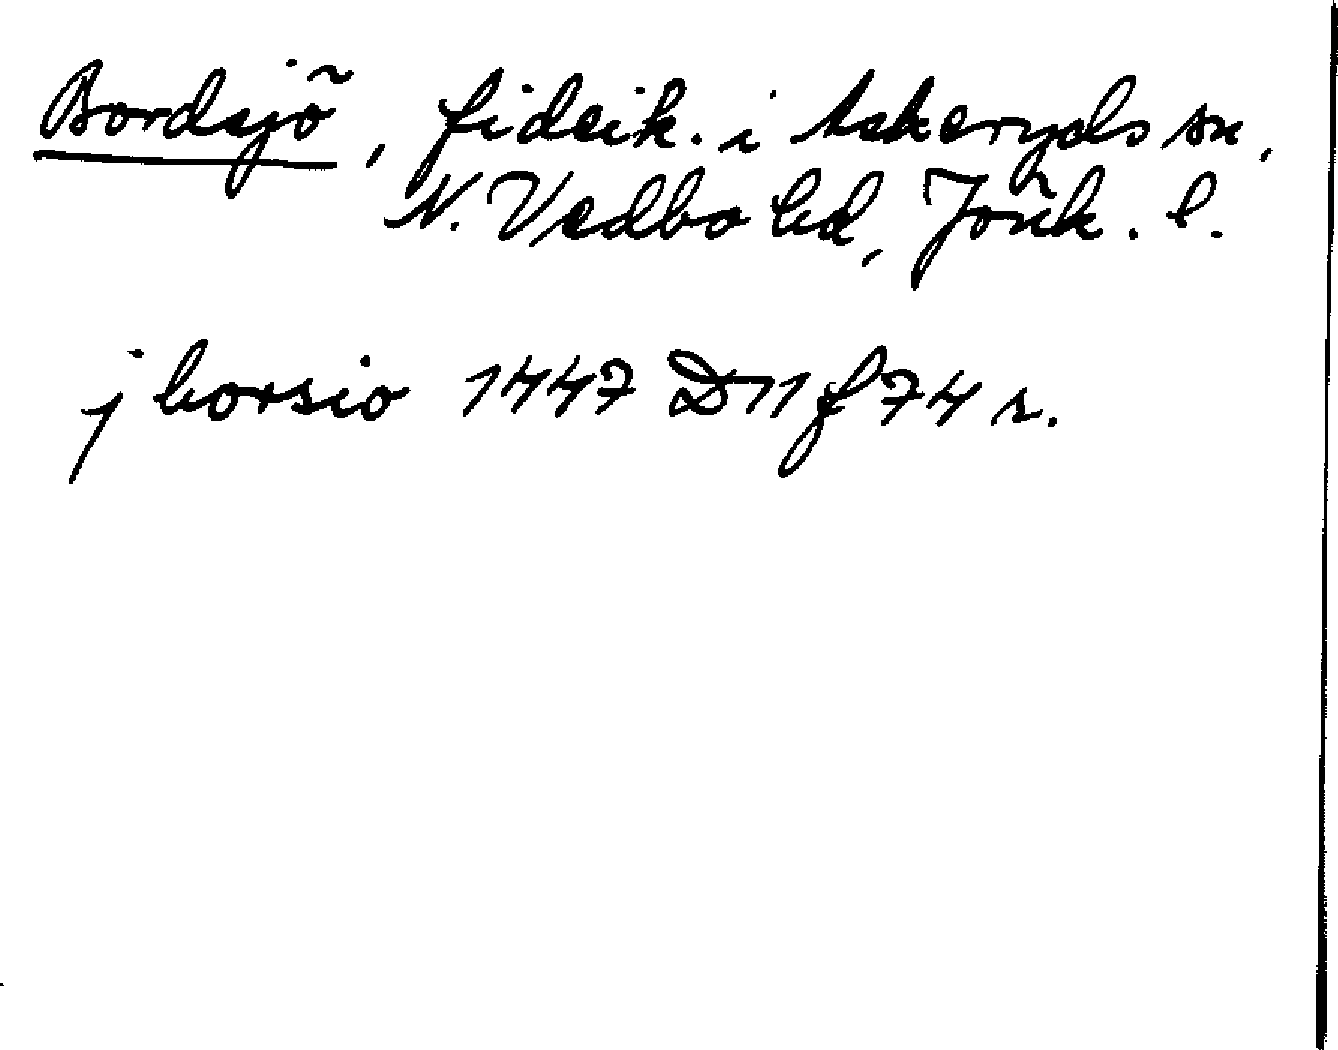 Bordsjö, fideik. i Askeryds sn,
N. Vedbo hd, Jönk. l.
j borsio 1447 D11 f 74 r.